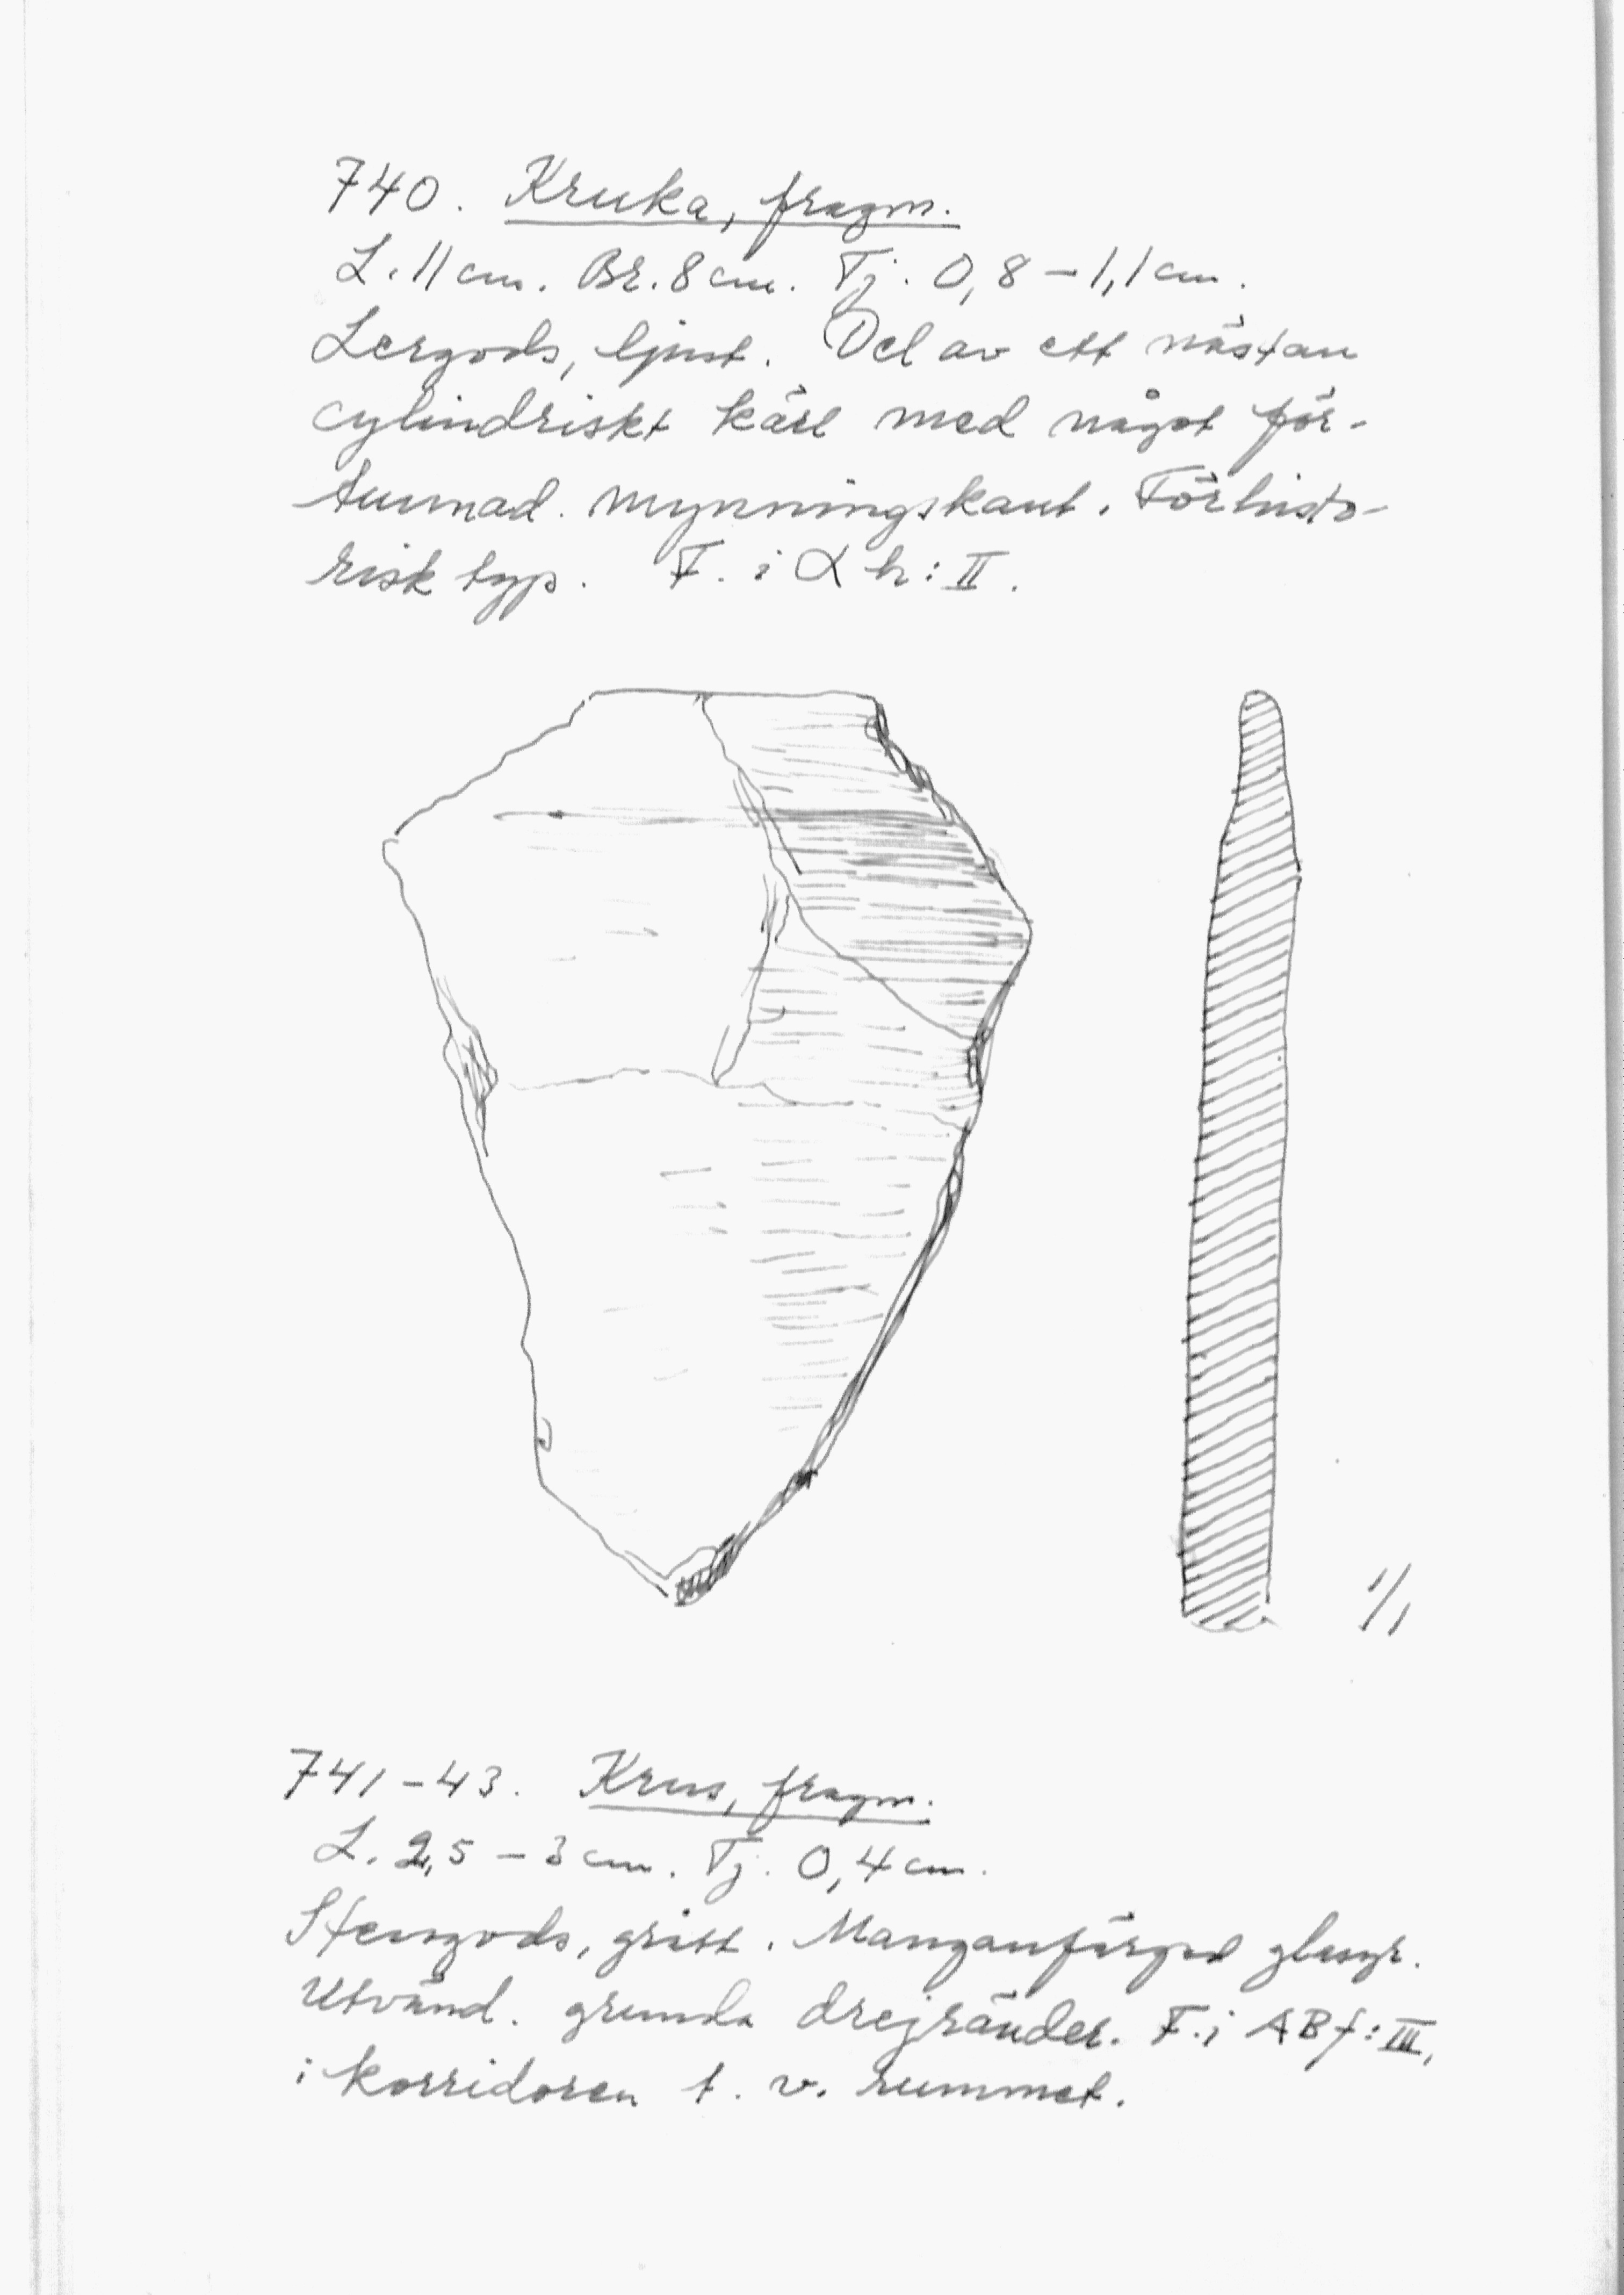 740. Kruka, fragm.
L. 11 cm. Br. 8 cm. Tj. 0,8 – 1,1 cm.
Lergods, ljust. Del av ett nästan
cylindriskt kärl med något för-
tunnad. mynningskant. Förhisto-
risk typ. F. i α h: II.
1/1
741–43. Krus, fragm.
L. 2,5 – 3 cm. Tj. 0,4 cm.
Stengods, grått. Manganfärgad glasyr.
Utvänd. grunda drejränder. F. i ABf: III,
i korridoren t. v. rummet.